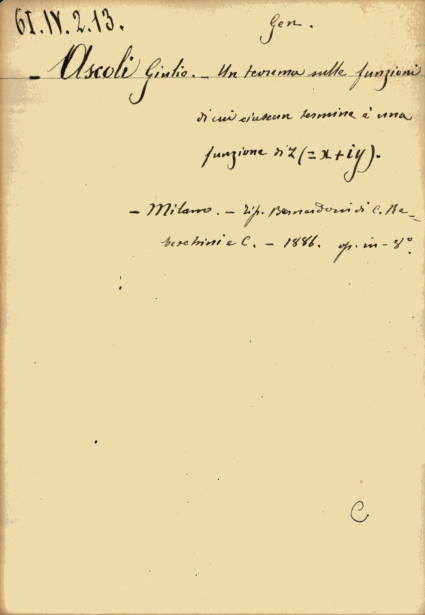 61.IV.2.13.
Gen.
- Ascoli Giulio. - Un teorema sulle funzioni
di cui ciascun termine è una
funzione di Z (= x + iy).
- Milano. - Tip. Bernardoni di C. Re-
beschini e C. - 1886. op. in-8°.
C